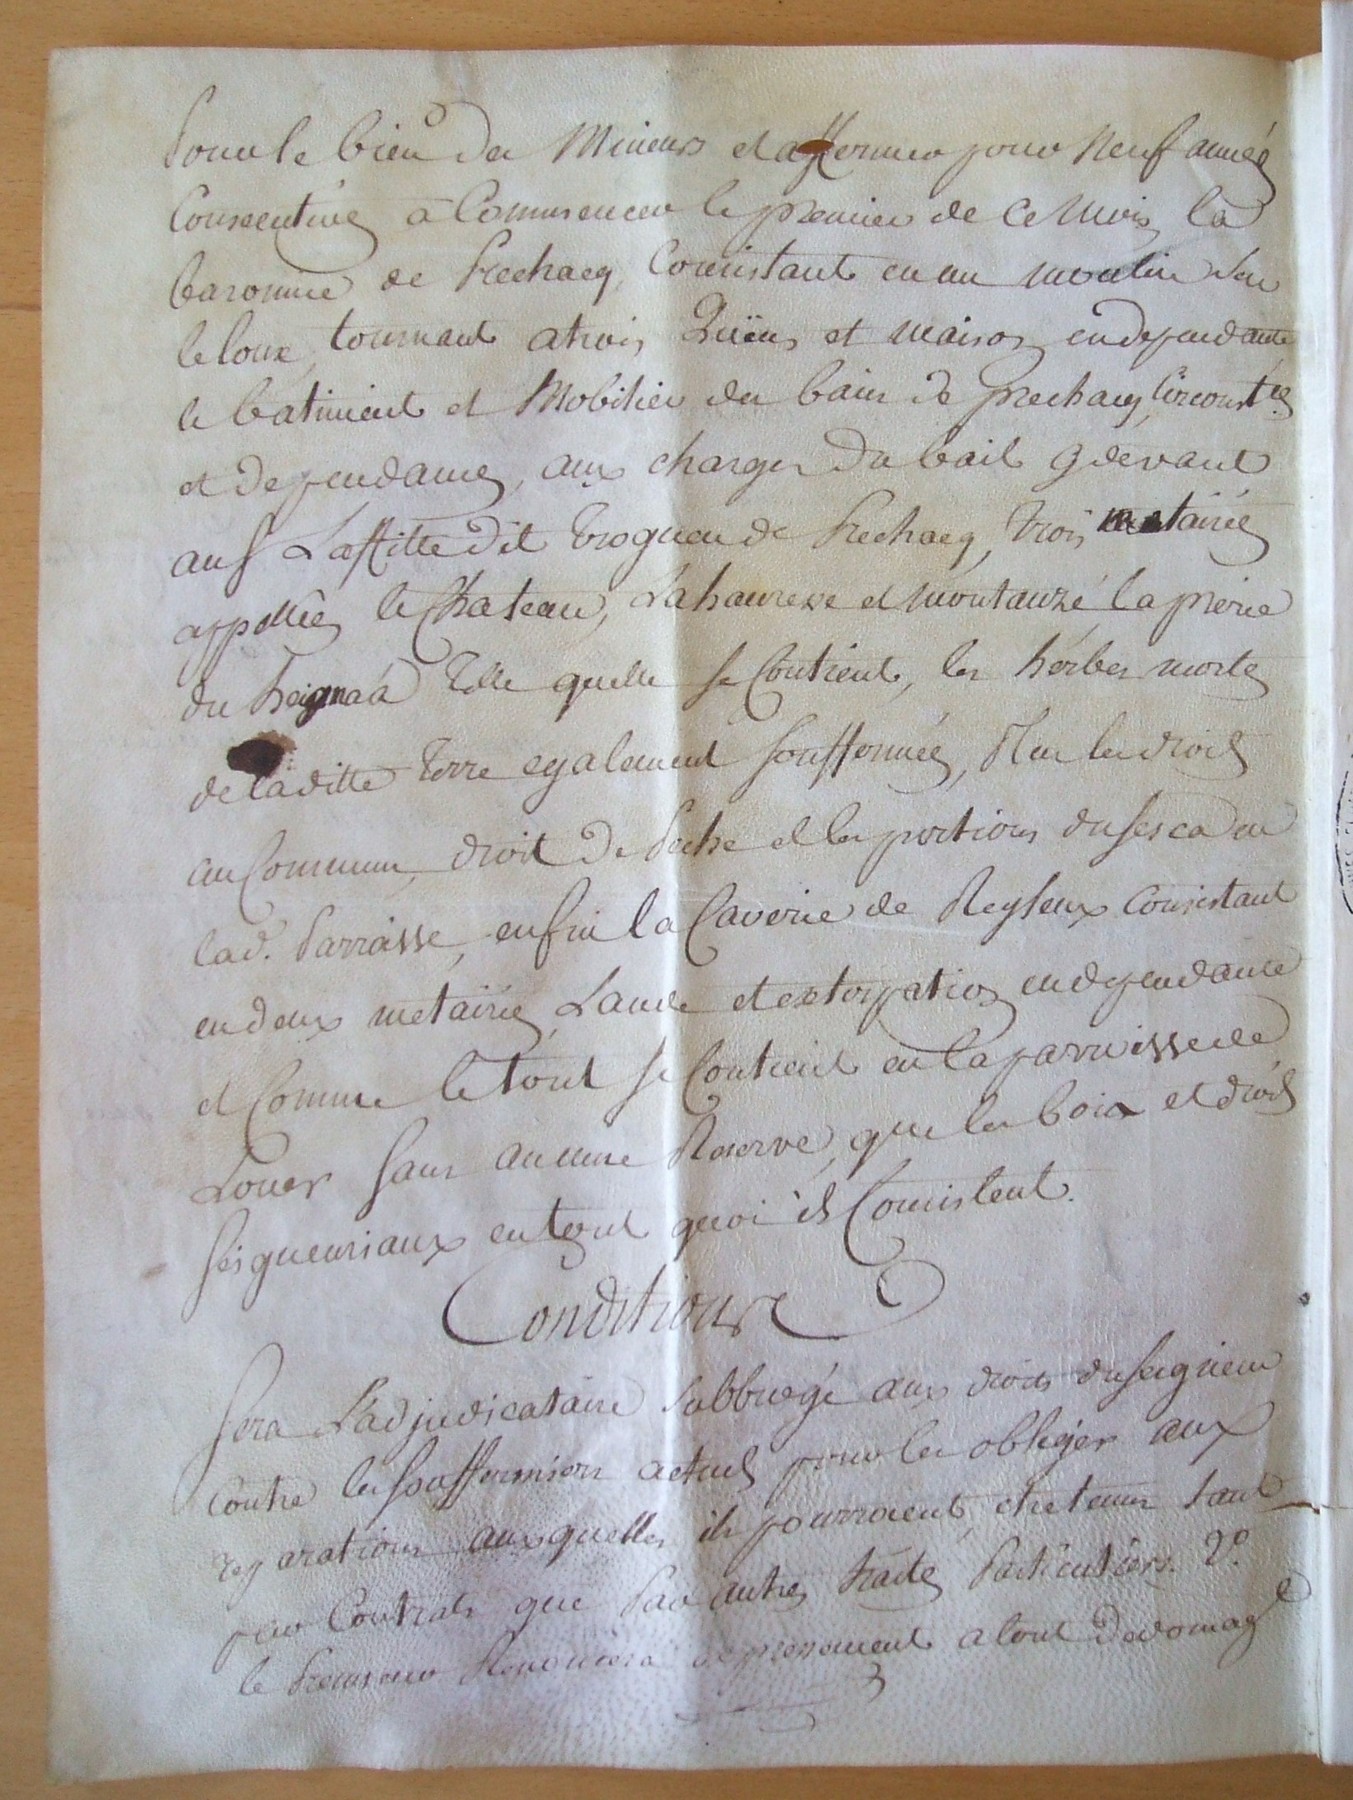 Pour le bien des Mineurs et affermer pour Neuf années
Consecutives à Commencer le premier de Ce Mois, la
baronnie de Prechacq, Consistant en un moulin sur
le Loux, tournant a trois et maison en dependante
le batiment et Mobilier des bains de prechacq, Circonst.es
et dependances, aux charges du bail cydevant
au S Laffitte dit de Prechacq, trois metairies
appellées le Chateau, Lahaurere et Montauzé, la prérie
du Telle quelle se Contient, les herbes mortes
de laditte terre egalement souffermées, Plus les droits
au Commun, droit de Peche et les portions du sesca en
lad. Parroisse, enfin la Caverie de Reyseux Consistant
en deux metairies, Lande et extirpation en dependante
et Comme le tout se Contient en la parroisse de
Louer sans aucune Reserve, que les bois et droits
seigneuriaux en tout quoi ils Consistent.
Conditions
sera L'adjudicataire subbrogé aux droits du seigneur
contre les souffermiers actuels pour les obliger aux
reparations auxquelles ils pourroient, etre tenus tant
par Contrats que Par autres traités Particuliers. 2º.
le Preneur Renoncera expressement a tout Dedomage